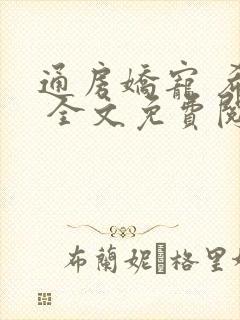 通房嬌寵
全文免費閱
布蘭妮·格里